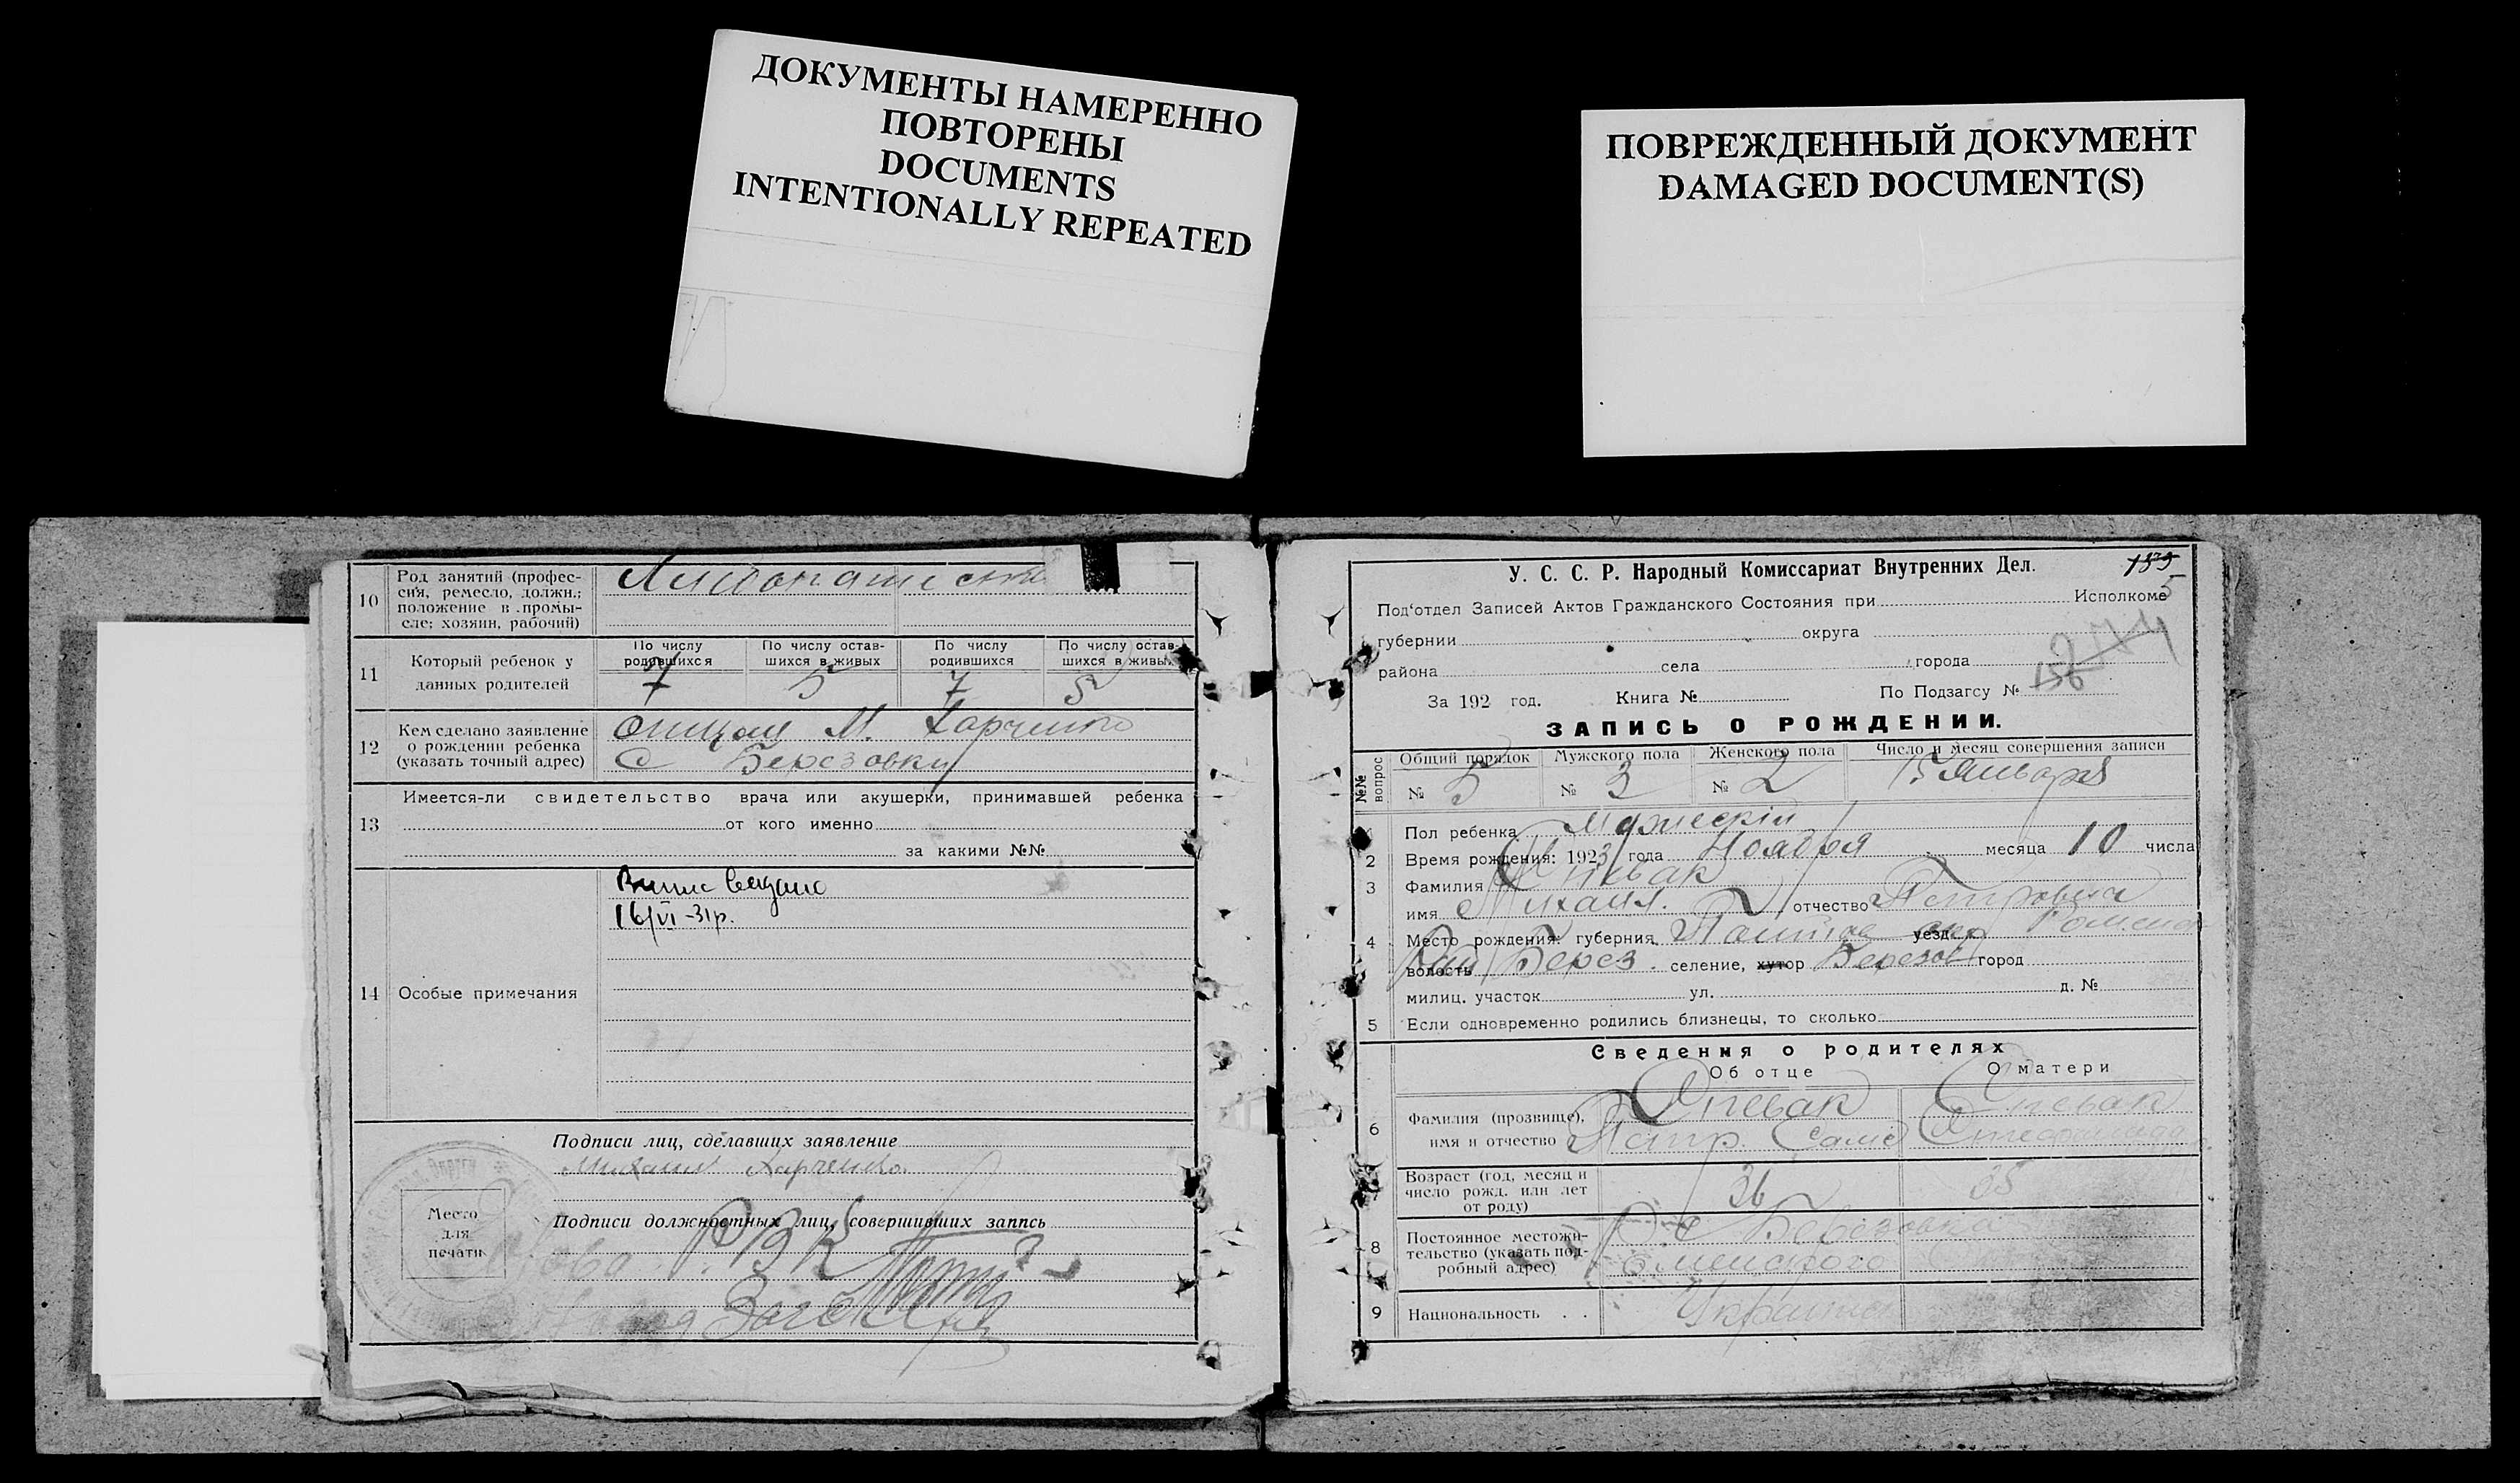 ДОКУМЕНТЫ НАМЕРЕННО
ПОВТОРЕНЫ
DOCUMENTS
INTENTIONALLY REPEATED
ПОВРЕЖДЕННЫЙ ДОКУМЕНТ
DAMAGED DOCUMENT(S)
10 Род занятий (профес-
сия, ремесло, должн.;
положение в промы-
сле; хозяин, рабочий)
11 Который ребенок у
данных родителей
По числу
родившихся
По числу остав-
шихся в живых
По числу
родившихся
По числу остав-
шихся в живых
7 5 7 5
12 Кем сделано заявление
о рождении ребенка
(указать точный адрес)
М. Харченко
С Березовки
13 Имеется-ли свидетельство врача или акушерки, принимавшей ребенка
от кого именно
за какими №№
14 Особые примечания
16/VI-31р.
Подписи лиц, сделавших заявление
Михаил Харченко
Подписи должностных лиц, совершивших запись
Место
для
печати
У. С. С. Р. Народный Комиссариат Внутренних Дел.
5
Под'отдел Записей Актов Гражданского Состояния при Исполкоме
губернии округа
района села города
За 192 год. Книга № По Подзагсу № 156
ЗАПИСЬ О РОЖДЕНИИ.
№№ вопрос
Общий порядок Мужского пола Женского пола Число и месяц совершения записи
№ 5 № 3 № 2 15 Января
1 Пол ребенка Мужескій
2 Время рождения: 1923 года Ноября месяца 10 числа
3 Фамилия Спевак
имя Михаил. отчество Петрович
4 Место рождения: губерния уезд
волость Берез. селение, хутор Березов город
милиц. участок ул. д. №
5 Если одновременно родились близнецы, то сколько
Сведения о родителях
Об отце О матери
6 Фамилия (прозвище),
имя и отчество
Спевак Спевак
Петр
Возраст (год, месяц и
число рожд. или лет
от роду)
36 35
8 Постоянное местожи-
тельство (указать под-
робный адрес)
с Березовка
9 Национальность . .